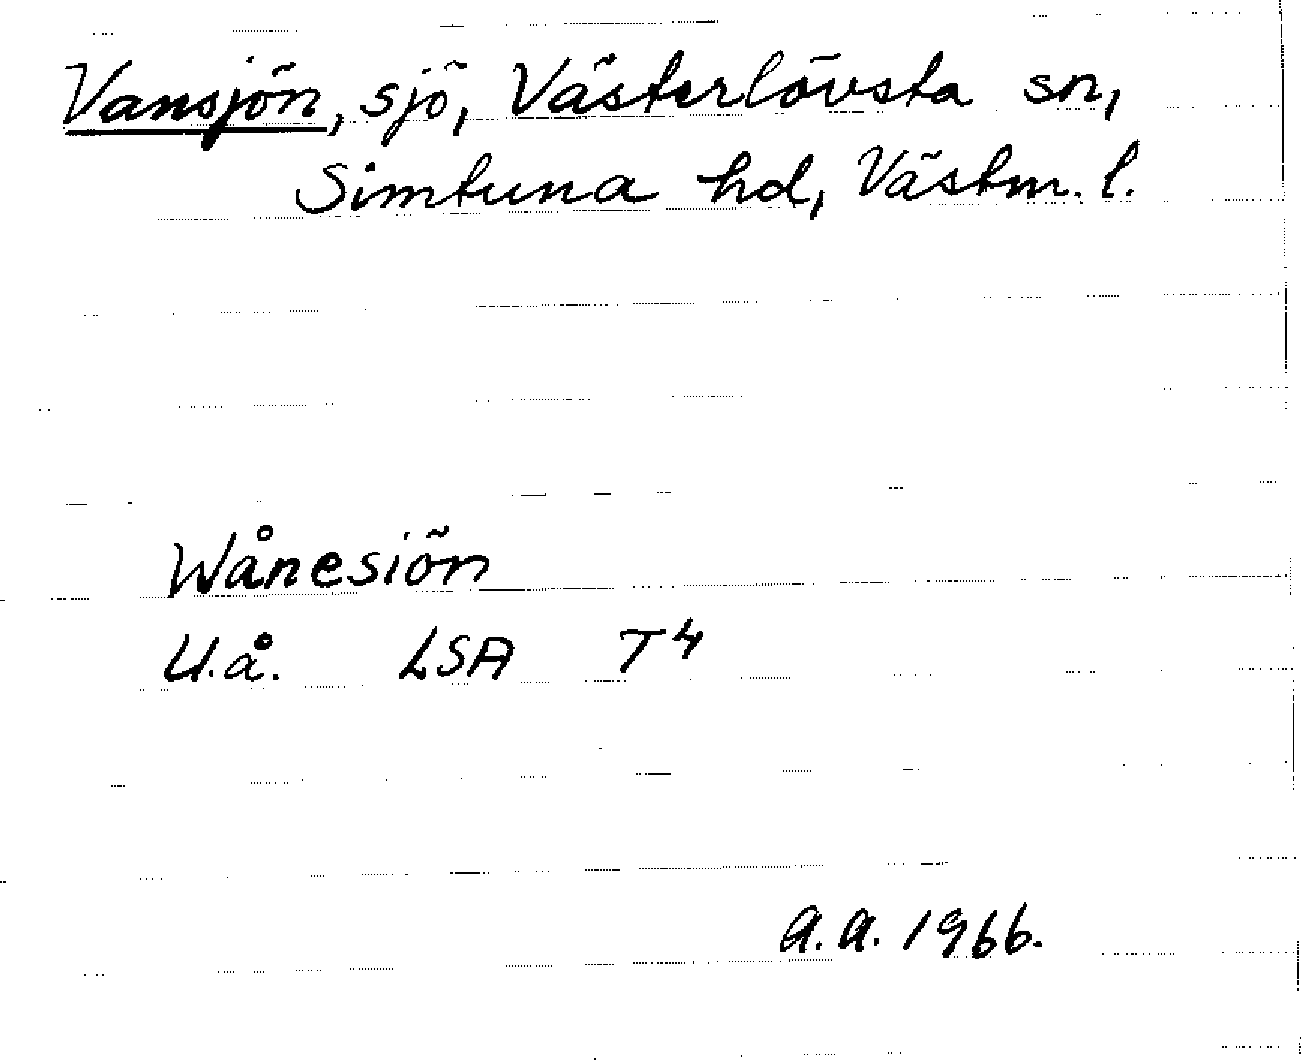 Vansjön, sjö, Västerlövsta sn,
Simtuna hd, Västm. l.
Wånesiön
U.å. LSA T4
A.A. 1966.